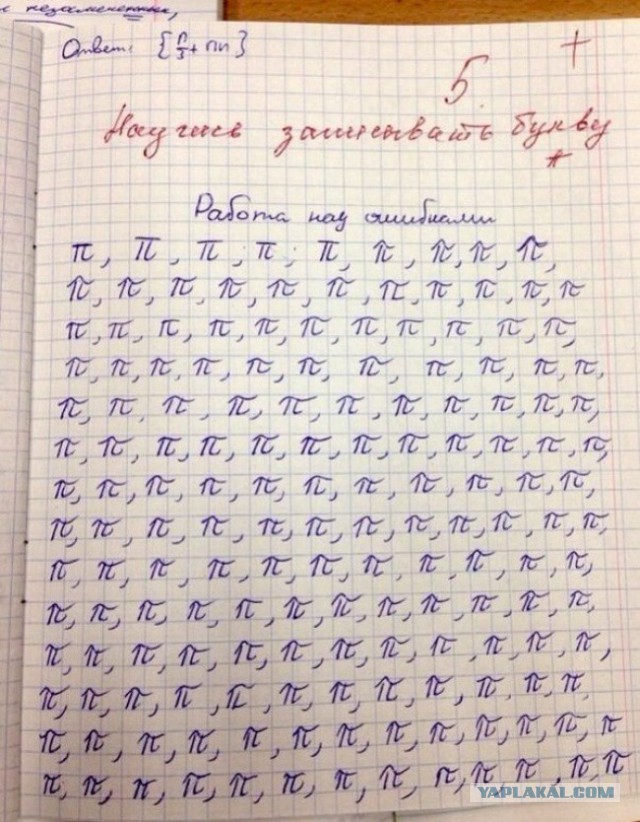 Ответ: {π/3 + πn}
5.
+
Научись записывать букву
π
Работа над ошибками
π, π, π, π, π, π, π, π, π,
π, π, π, π, π, π, π, π, π, π, π
π, π, π, π, π, π, π, π, π, π, π,
π, π, π, π, π, π, π, π, π, π, π,
π, π, π, π, π, π, π, π, π, π, π,
π, π, π, π, π, π, π, π, π, π, π, π,
π, π, π, π, π, π, π, π, π, π, π,
π, π, π, π, π, π, π, π, π, π, π, π,
π, π, π, π, π, π, π, π, π, π, π,
π, π, π, π, π, π, π, π, π, π, π, π,
π, π, π, π, π, π, π, π, π, π, π, π,
π, π, π, π, π, π, π, π, π, π, π, π,
π, π, π, π, π, π, π, π, π, π, π, π, π
π, π, π, π, π, π, π, π, π, π, π, π, π
YAPLAKAL.COM